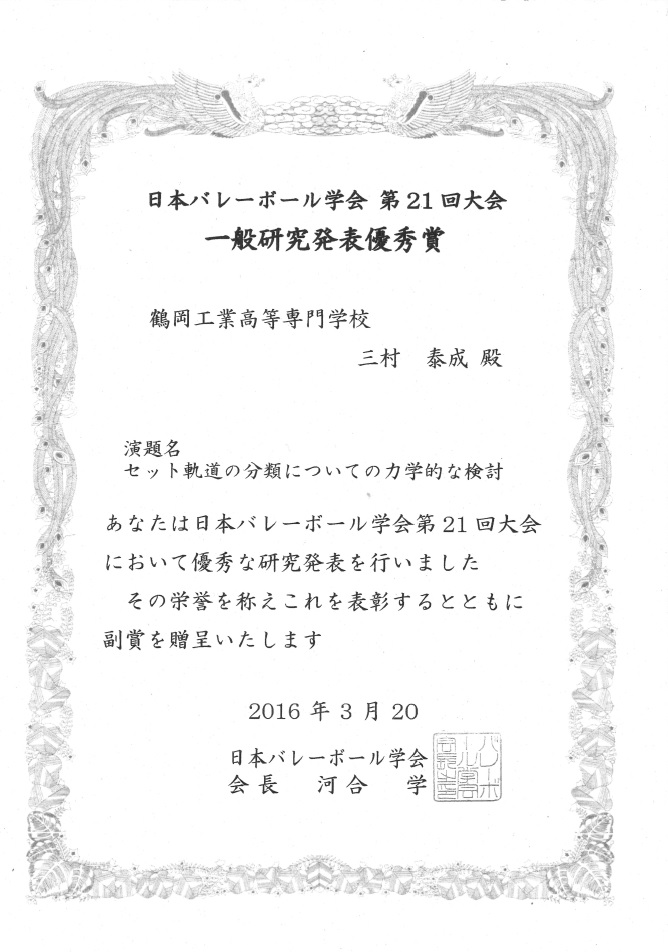 日本バレーボール学会 第21回大会
一般研究発表優秀賞
鶴岡工業高等専門学校
三村 泰成 殿
演題名
セット軌道の分類についての力学的な検討
あなたは日本バレーボール学会第21回大会
において優秀な研究発表を行いました
その栄誉を称えこれを表彰するとともに
副賞を贈呈いたします
2016年3月20
日本バレーボール学会
会長 河合 学